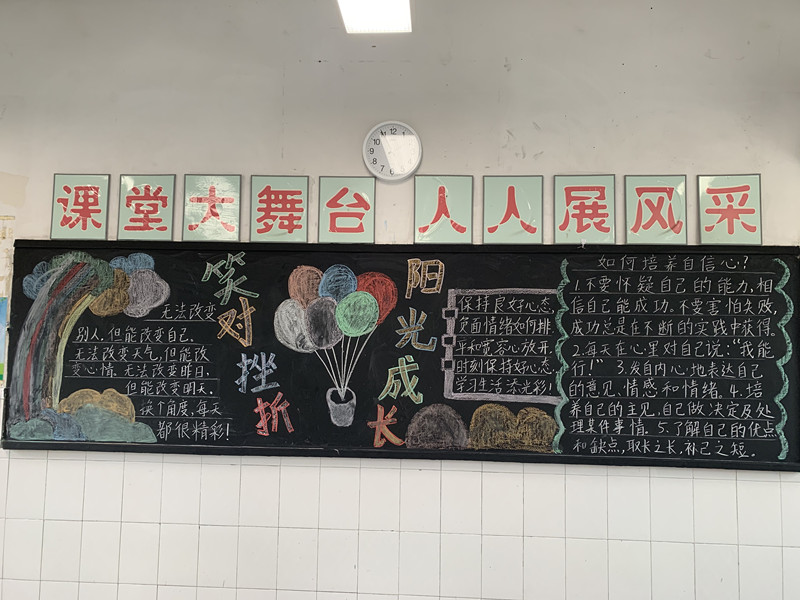 课堂大舞台 人人展风采
无法改变
别人,但能改变自己。
无法改变天气,但能改
变心情。无法改变昨日,
但能改变明天。
换个角度,每天
都很精彩!
笑对挫折
阳光成长
保持良好心态,
负面情绪如何排,
平和宽容心放开,
时刻保持好心态,
学习生活添光彩!
如何培养自信心?
1.不要怀疑自己的能力,相
信自己能成功。不要害怕失败,
成功总是在不断的实践中获得。
2.每天在心里对自己说:“我能
行!” 3.发自内心地表达自己
的意见、情感和情绪。4.培
养自己的主见,自己做决定及处
理某件事情。5.了解自己的优点
和缺点,取长之长,补己之短。
10 11 12 1
9
8
7 6 5